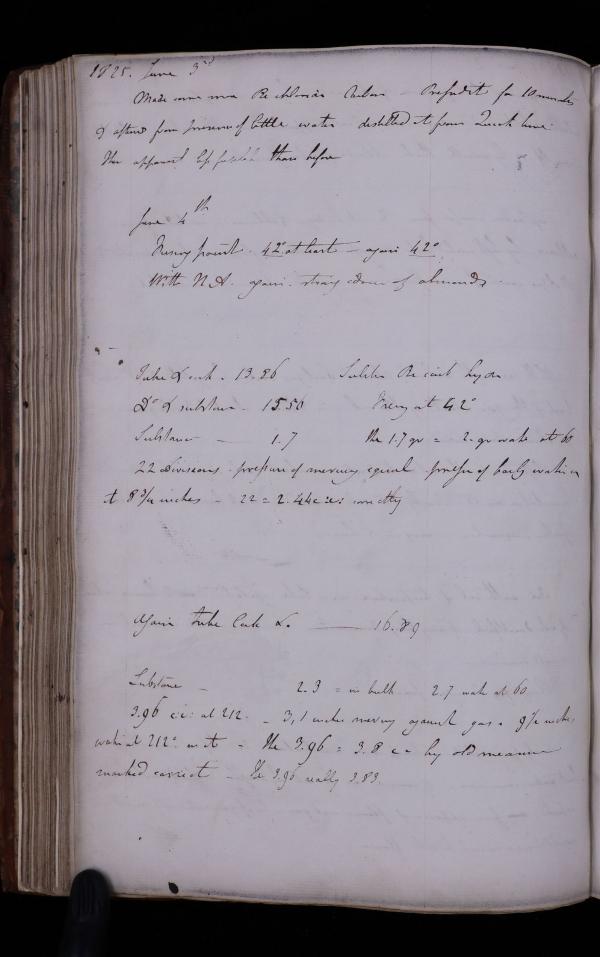 1825. June 3rd
Made some more Bi chloride Carbon for 10 minutes
& after from of little water distilled it from Quick lime
The apparent less than before
June 4th
Freezing point - 42° at least - again 42°
With N A. again strong odour of almonds
Tube & cork - 13.86
Do & substance - 15.56 Freezing at 42°
Substance - 1.7 the 1.7 gr = 2. gr water at 60
22 divisions - pressure of mercury equal pressure of water in
it 8 3/4 inches - 22 = 2.44 c:i: correctly
Again tube Cork &c —— 16.89
Substance - 2.3 = in bulk 2.7 water at 60
3.96 c:i: at 212 - 3,1 inches mercury against gas = 9 1/2 inches
water at 212° in it - The 3.96 = 3.8 c = by old measure
marked correct - The 3.96 really 3.83.